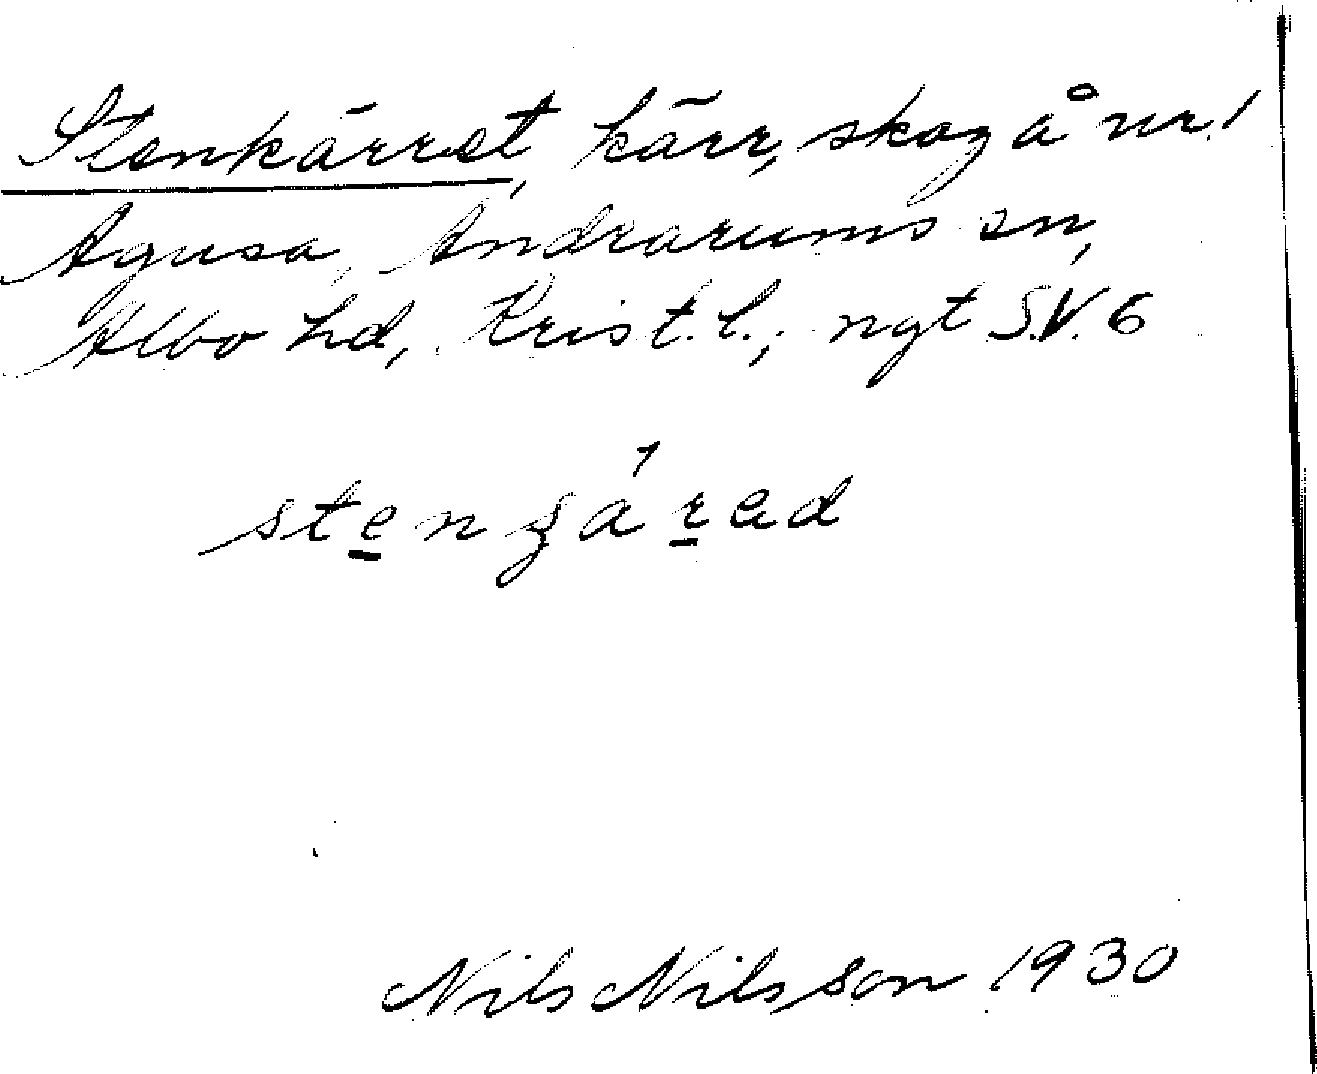 Stenkärret, kärr, skog å nr 1
Agusa, Andrarums sn,
Albo hd, Krist. l., ngt S.V. 6
Nils Nilsson 1930